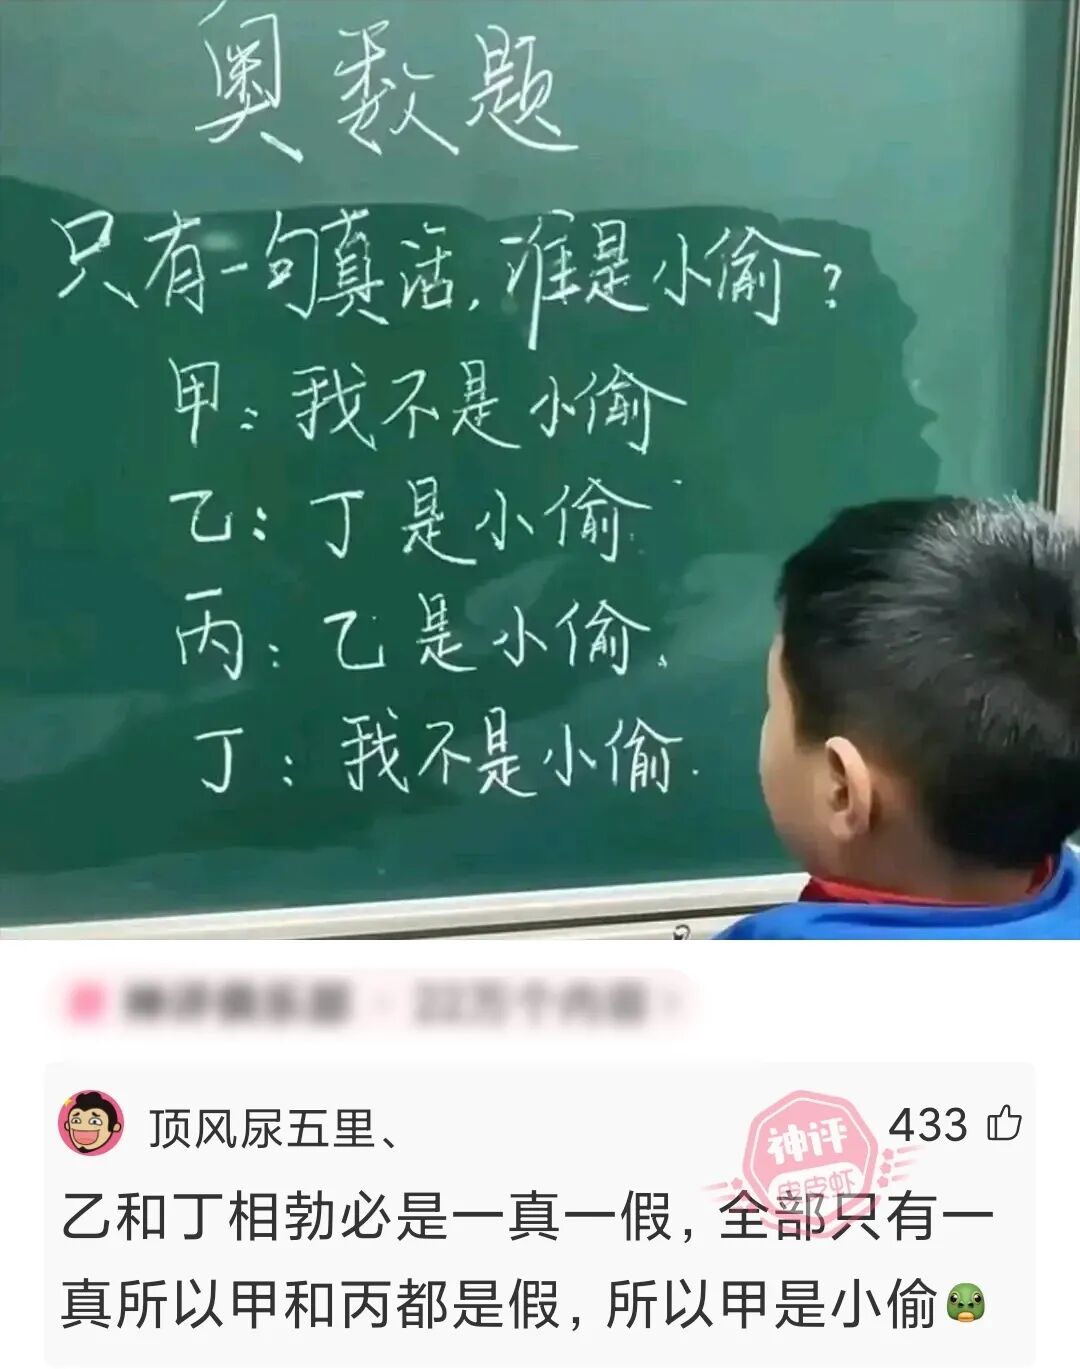 奥数题
只有一句真话,谁是小偷?
甲:我不是小偷
乙:丁是小偷.
丙:乙是小偷.
丁:我不是小偷.
顶风尿五里、
神评
皮皮虾
433
乙和丁相勃必是一真一假,全部只有一
真所以甲和丙都是假,所以甲是小偷